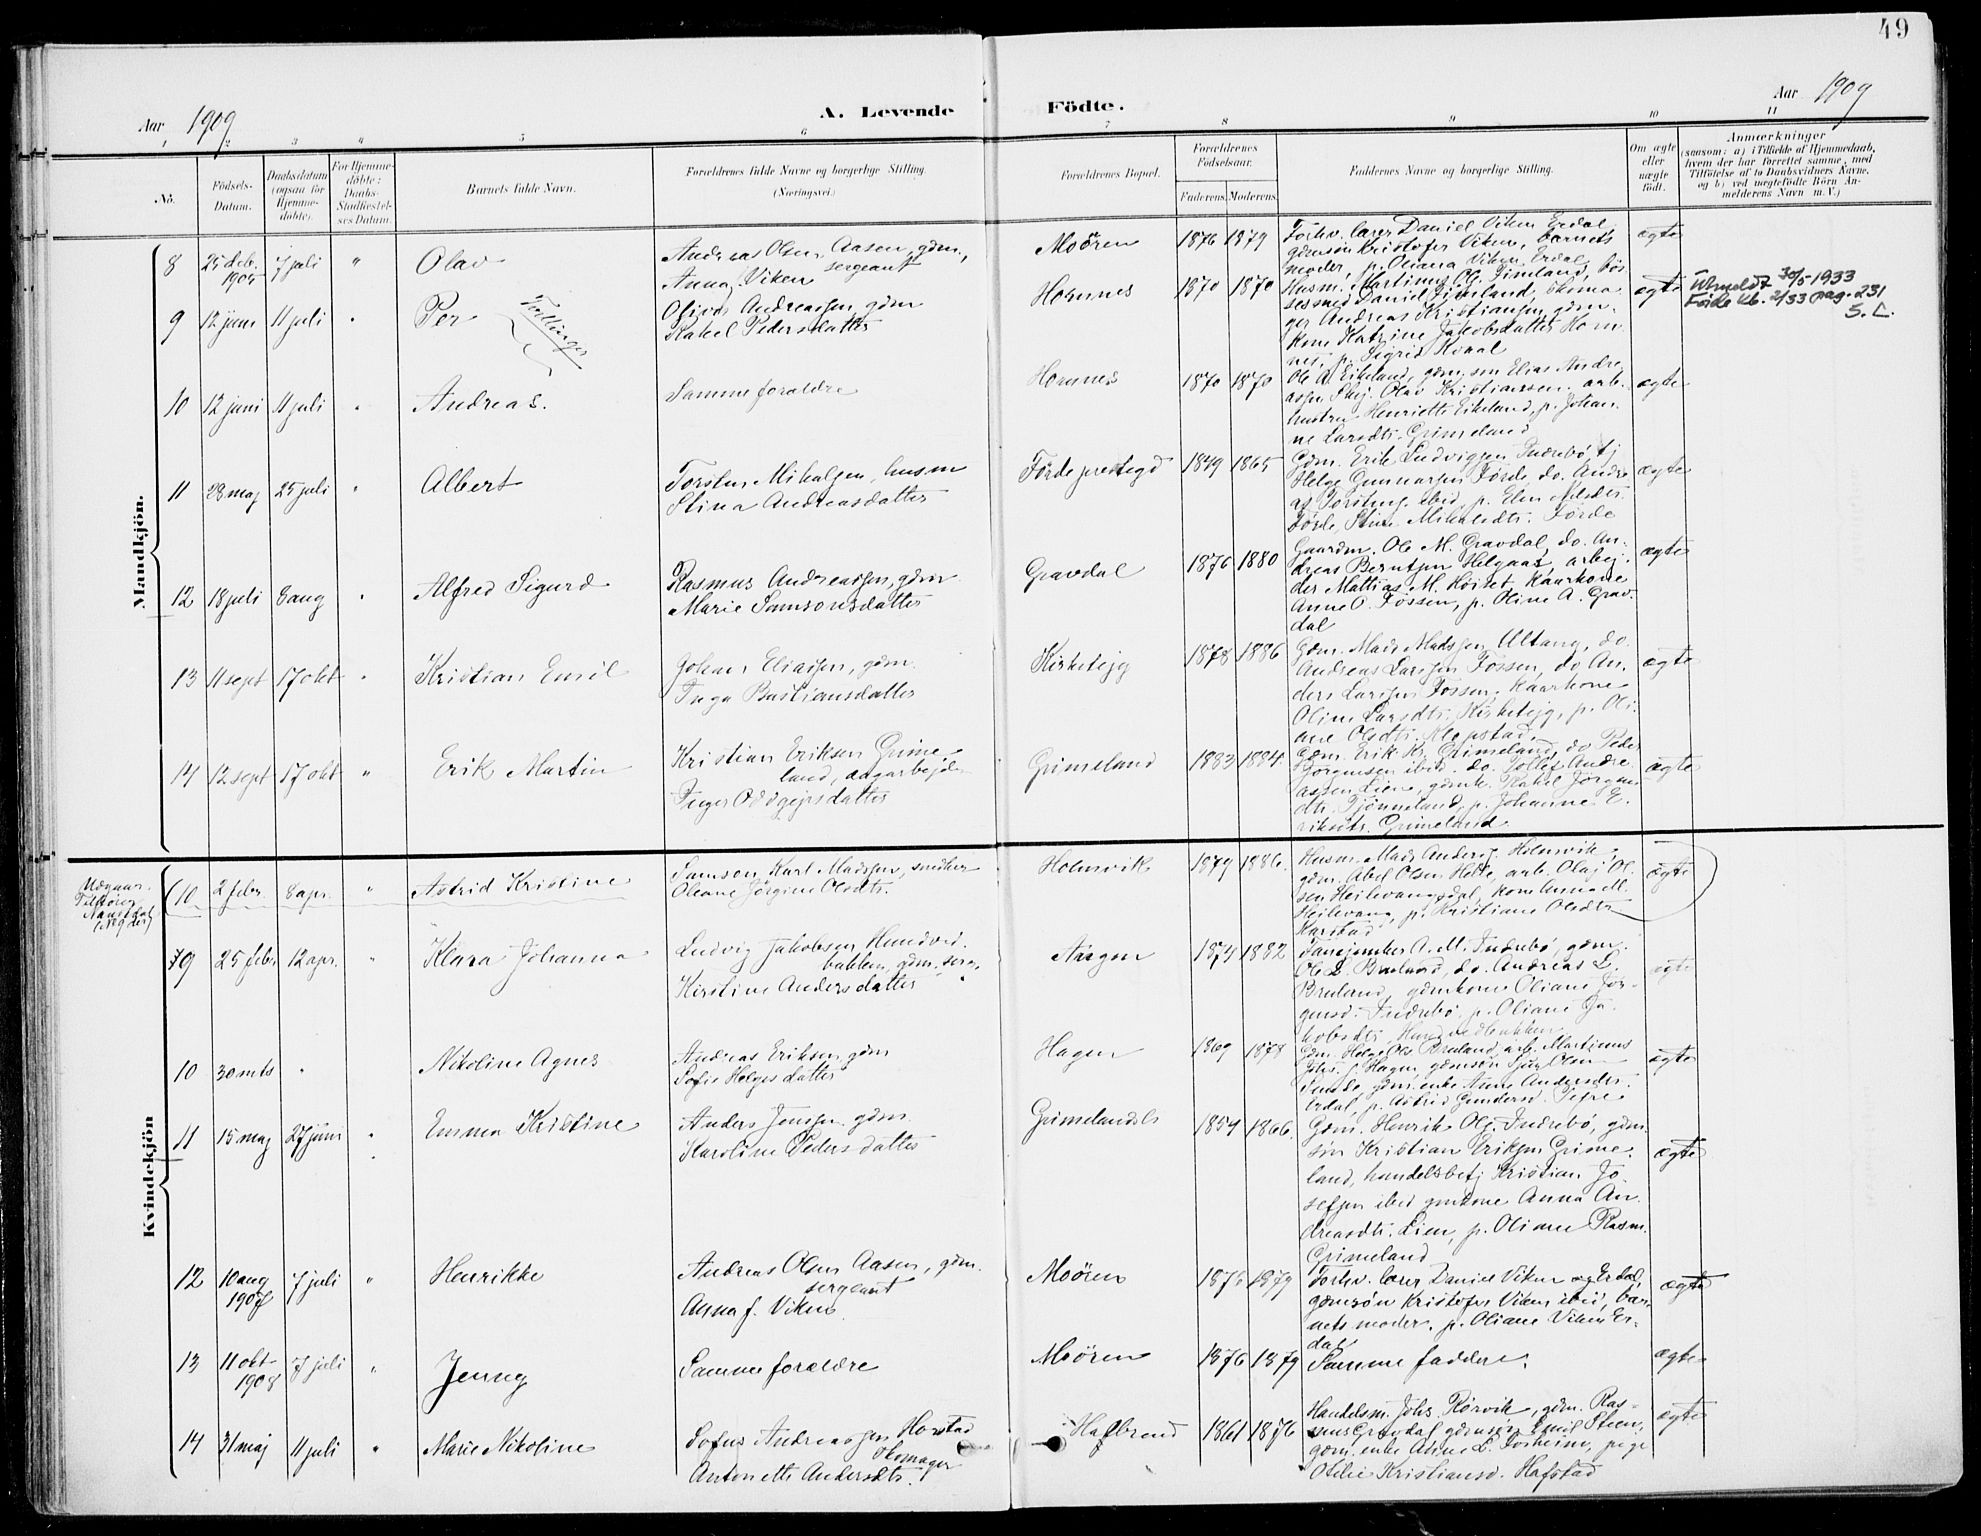 49
Aar 1909
A. Levende Födte.
Aar 1909
1 2 3 4 5 6 7 8 9 10 11
No.
Födsels-Datum.
Daabsdatum (ogsaa for Hjemme-döbte).
For Hjemme-döbte: Daabs-Stadfæstel-ses Datum.
Barnets fulde Navn.
Forældrenes fulde Navne og borgerlige Stilling. (Næringsvei.)
Forældrenes Bopæl.
Forældrenes Födselsaar.
Faderens. Moderens.
Faddernes Navne og borgerlige Stilling.
Om ægte eller uægte födt.
Anmærkninger
(saasom: a) i Tilfælde af Hjemmedaab,
hvem der har forrettet samme, med
Tilföielse af to Daabsvidners Navne,
og b) ved uegtefödte Börn An-
melderens Navn m. V.)
Mandkjön.
8 25 deb. 1905 7 juli " Olav
Andreas Olsen Aasen, gdm., sergeant
Anna Viken
Moören 1876 1879
Forhv. lærer Daniel Viken Erdal,
gdmsön Kristofer Viken, barnets
moder, p. Oliana Viken Erdal
ægte
9 12 juni 11 juli " Per
Tvillinger
Oliver Andreassen gdm
Rakel Pedersdatter
Hornnes 1870 1870
Husm. Martinus Ol. Jimeland, hus
sesmed Daniel Jimeland, skoma
ger Andreas Kristiansen, gdm.
kone Katrine Jakobsdatter Horn
nes, p. Sigrid Kvaal
ægte
Utmeldt 30/5 1933
Förde kb. 2/33 pag. 231
S. L.
10 12 juni 11 juli " Andreas.
Samme forældre
Hornnes 1870 1870
Ole A. Eikeland, gdm. sön Elias Andre
assen Skej. Olav Kristianssen. arb.
hustru Henriette Eikeland, p. Johan
ne Larsdtr. Grimeland
ægte
11 28 maj 25 juli " Albert
Torsten Mikalsen, husm
Stina Andreasdatter
Förde prestegd 1849 1865
Gdm. Erik Ludvigsen Indrebö, tj
Helge Gunnarsen Förde, do. Andre
as Torsteins. ibid, p. Elen Nilsdtr.
Förde, Stine Mikalsdtr. Förde
ægte
12 18 juli 8 aug " Alfred Sigurd
Rasmus Andreassen, gdm
Marie Samsonsdatter
Gravdal 1876 1880
Gaardm. Ole M. Gravdal, do. An-
dreas Berntsen Helgaas, arbej.
der Mattias M. Höitet, Kaarkone
Anne O. Fossen, p. Oline A. Grav.
dal
ægte
13 11 sept 17 okt " Kristian Emil
Johan Eliassen, gdm.
Inga Bastiansdatter
Kirketejg 1878 1886
Gdm. Mads Madssen Ultang, do.
Andreas Larssen Fossen, do An.
ders Larssen Fossen, Kaarkone
Oline Larsdtr. Kirketejg, p. Oli.
ane Olsdtr. Klopstad.
ægte
14 12 sept 17 okt " Erik Martin
Kristian Eriksen Grime
land, dagarbejder
Inger Oddgejrsdatter
Grimeland 1883 1884
Gdm. Erik Kr. Grimeland, do Peder
Jörgensen ibid. do. Tollef Andre
assen Lien, gdmk. Rakel Jörgens
dtr. Tjönneland, p. Johanne E.
riksdtr. Grimeland
ægte
Kvindekjön
10 2 febr. 8 apr. " Astrid Kristine
Samson Karl Madssen, snedker
Oleane Jörgine Olsdtr.
Holmsvik 1879 1886.
Husm. Mads Anders. Holmsvik,
gdm. Abel Olsen Holte, arb. Olaj Ol.
sen Hejlevangsdal, kone Anna M.
Hejlevang, p. Kristiane Olsdtr
Karstad
ægte
9 25 febr 12 apr. " Klara Johanna
Ludvig Jakobsen Hundved.
bakken, gdm. søn.
Kirstine Andersdatter
Aargen 1874 1882
Fanejunker A. M. Indrebö, gdm.
Ole L. Bruland, do. Andreas L.
Bruland, gdmkone Oliane Jör-
gensd. Indrebö, p. Oliane Ja.
kobsdtr Hundvedbakken
ægte
10 30 mts " Nikoline Agnes
Andreas Eriksen, gdm
Sofie Helgesdatter
Hagen 1869 1878
Gdm. Helge Ols. Bruland, arb. Martinus
Johs. f. Hagen, gdmsön Sjur Olsen
Sunde, gdm. enke Anne Andersdtr.
Erdal, p. Astrid Gundersd. Tefre
ægte
11 15 maj 27 juni " Emma Kristine
Anders Jonssen gdm
Karoline Pedersdatter
Grimelandsl. 1854 1866.
Gdm. Henrik Ols. Indrebö, gdm
sön Kristian Eriksen Grime.
land, handelsbetj Kristian Jo.
sefsen ibid gmkone Anna An.
dreasdtr. Lien, p. Oliane Rasm.
Grimeland
ægte
12 10 aug 1907 7 juli " Henrikke
Andreas Olsen Aasen, gdm. sergeant
Anna f. Viken
Moören 1876 1879
Forhv. lærer Daniel Viken og Erdal,
gdmsön Kristofer Viken ibid, bar-
nets moder, p. Oliane Viken Er-
dal
ægte
13 11 okt 1908 7 juli " Jenny
Samme forældre
Moören 1876 1879
Samme faddere.
ægte
14 31 maj 11 juli " Marie Nikoline
Sofus Andreassen Horstad
skomager
Antonette Andersdtr.
Hafbrend 1861 1876
Handelsm. Johs. Rörvik, gdm. Ras-
mus Gravdal gdmsön Emil Steen,
gdm. enke Anne L. Forheim, pige
Otilie Kristiansd. Hafstad
ægte